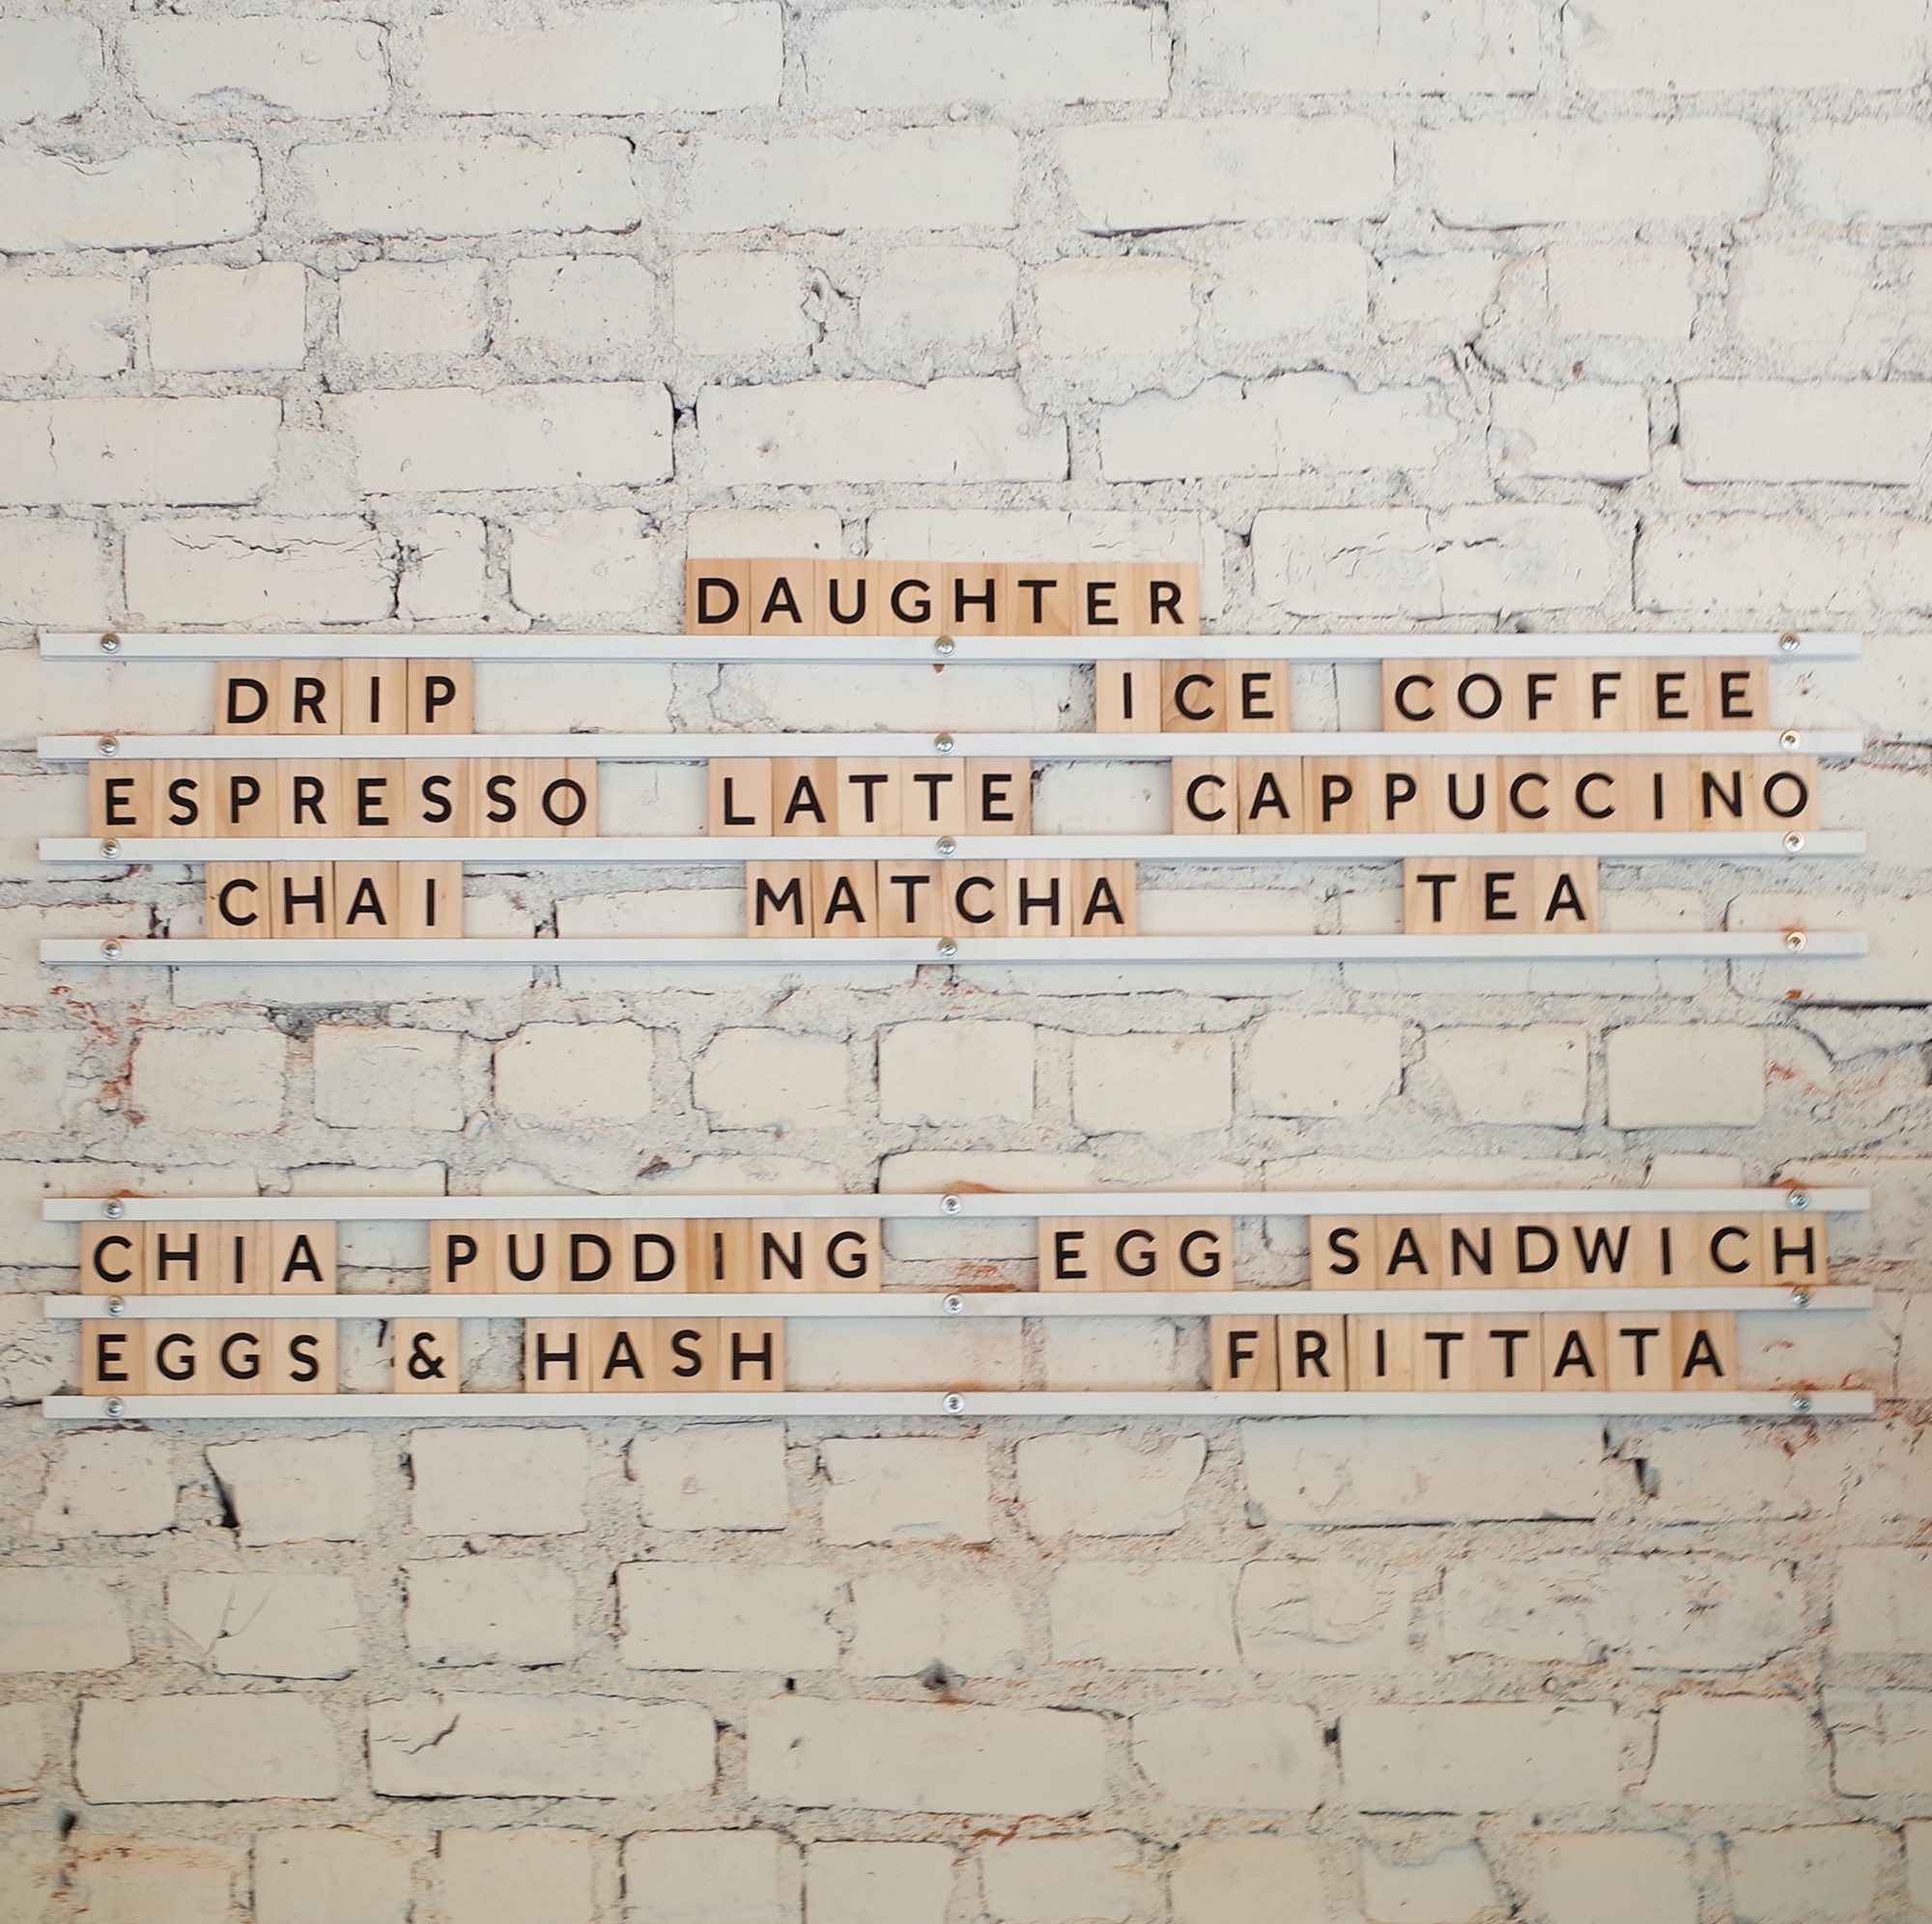 DAUGHTER
DRIP ICE COFFEE
ESPRESSO LATTE CAPPUCCINO
CHAI MATCHA TEA
CHIA PUDDING EGG SANDWICH
EGGS & HASH FRITTATA